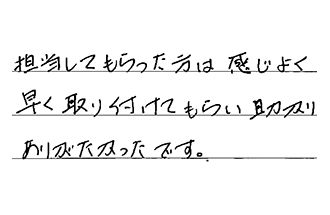 担当してもらった方は 感じよく
早く取り付けてもらい助かり
ありがたかったです。